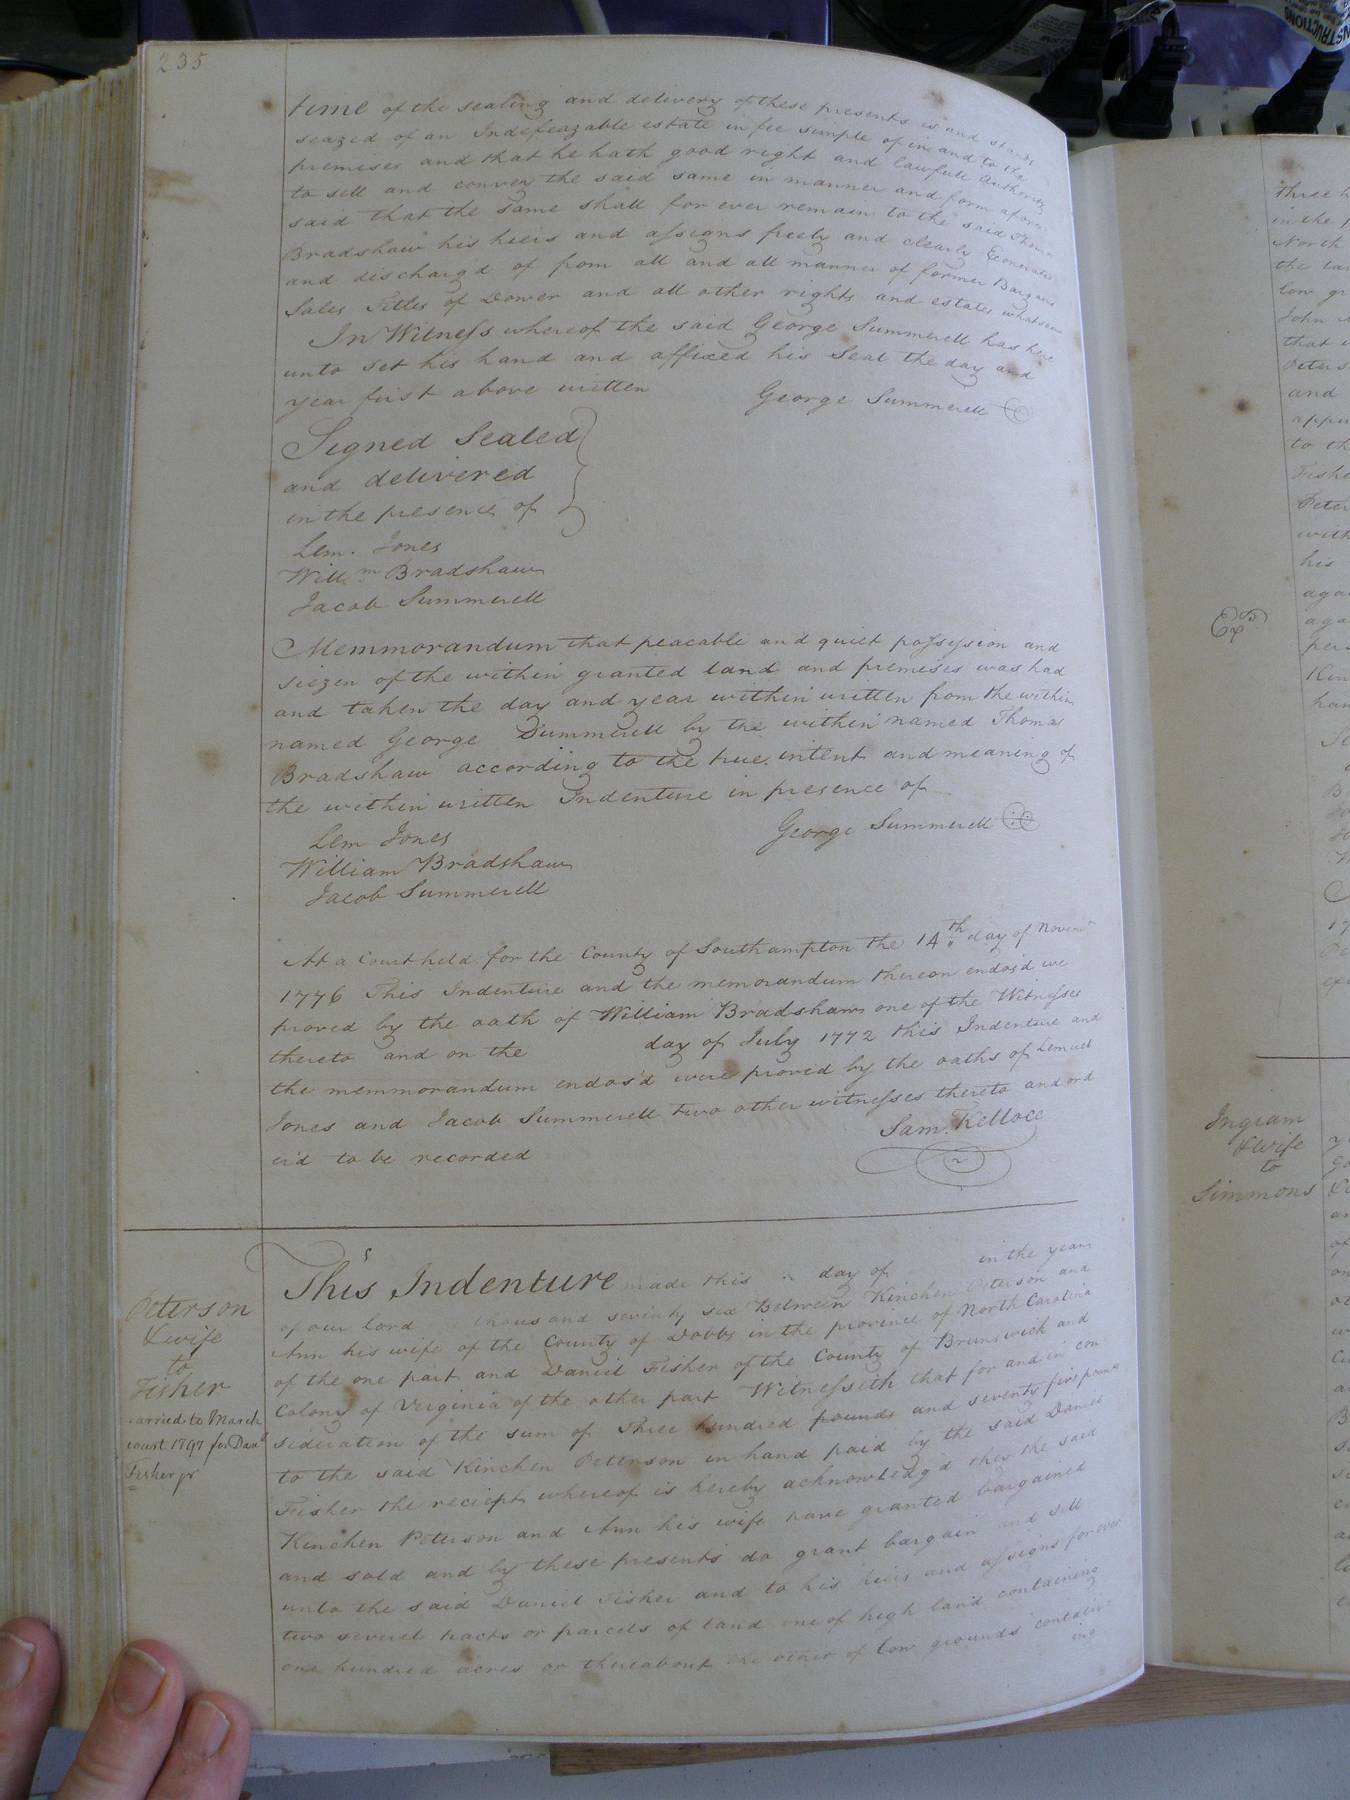 235
time of the sealing and delivery of these presents is and stands
seazed of an Indefeazable estate in fee simple of in and to the
premises and that he hath good right and lawfull Authority
to sell and convey the said same in manner and form afore
said that the same shall for ever remain to the said Thomas
Bradshaw his heirs and assigns freely and clearly Exonerated
and discharg'd of from all and all manner of former Bargains
Sales Titles of Dower and all other rights and estates whatsoever
In Witness whereof the said George Summerell has here
unto set his hand and affixed his Seal the day and
year first above written George Summerell
Signed Sealed
and delivered
in the presence of
Lem. Jones
Willm Bradshaw
Jacob Summerell
Memmorandum that peacable and quiet possession and
siezen of the within granted land and premises was had
and taken the day and year within written from the within
named George Summerell by the within named Thomas
Bradshaw according to the true intent and meaning of
the within written Indenture in presence of
George Summerell
Lem Jones
William Bradshaw
Jacob Summerell
At a Court held for the County of Southampton the 14th day of Novemr
1776 This Indenture and the memorandum thereon endos'd we
proved by the oath of William Bradshaw one of the Witnesses
thereto and on the day of July 1772 this Indenture and
the memmorandum endos'd were proved by the oaths of Lemuel
Jones and Jacob Summerell two other witnesses thereto and ord
er'd to be recorded
Sam. Kelloce
Peterson
& wife
to
Fisher
carried to March
court 1797 for Danl
Fisher jr
This Indenture made this day of in the year
of our lord thousand seventy six Between Kinchen Peterson and
Ann his wife of the County of Dobbs in the province of North Carolina
of the one part and Daniel Fisher of the County of Brunswick and
Colony of Virginia of the other part Witnesseth that for and in con
sideration of the sum of Three hundred pounds and seventy five pounds
to the said Kinchen Peterson in hand paid by the said Daniel
Fisher the reciept whereof is hereby acknowledg'd they the said
Kinchen Peterson and Ann his wife have granted bargained
and sold and by these presents do grant bargain and sell
unto the said Daniel Fisher and to his heirs and assigns for ever
two severel tracts or parcels of land one of high land containing
one hundred acres or thereabout the other of low grounds contain
ing
three h
in the
North
the lan
low gr
John
that
Peters
and
appu
to th
Fishe
Peter
with
his
aga
aga
per
Kin
han
Exd.
17
Ingram
& wife
to
Simmons